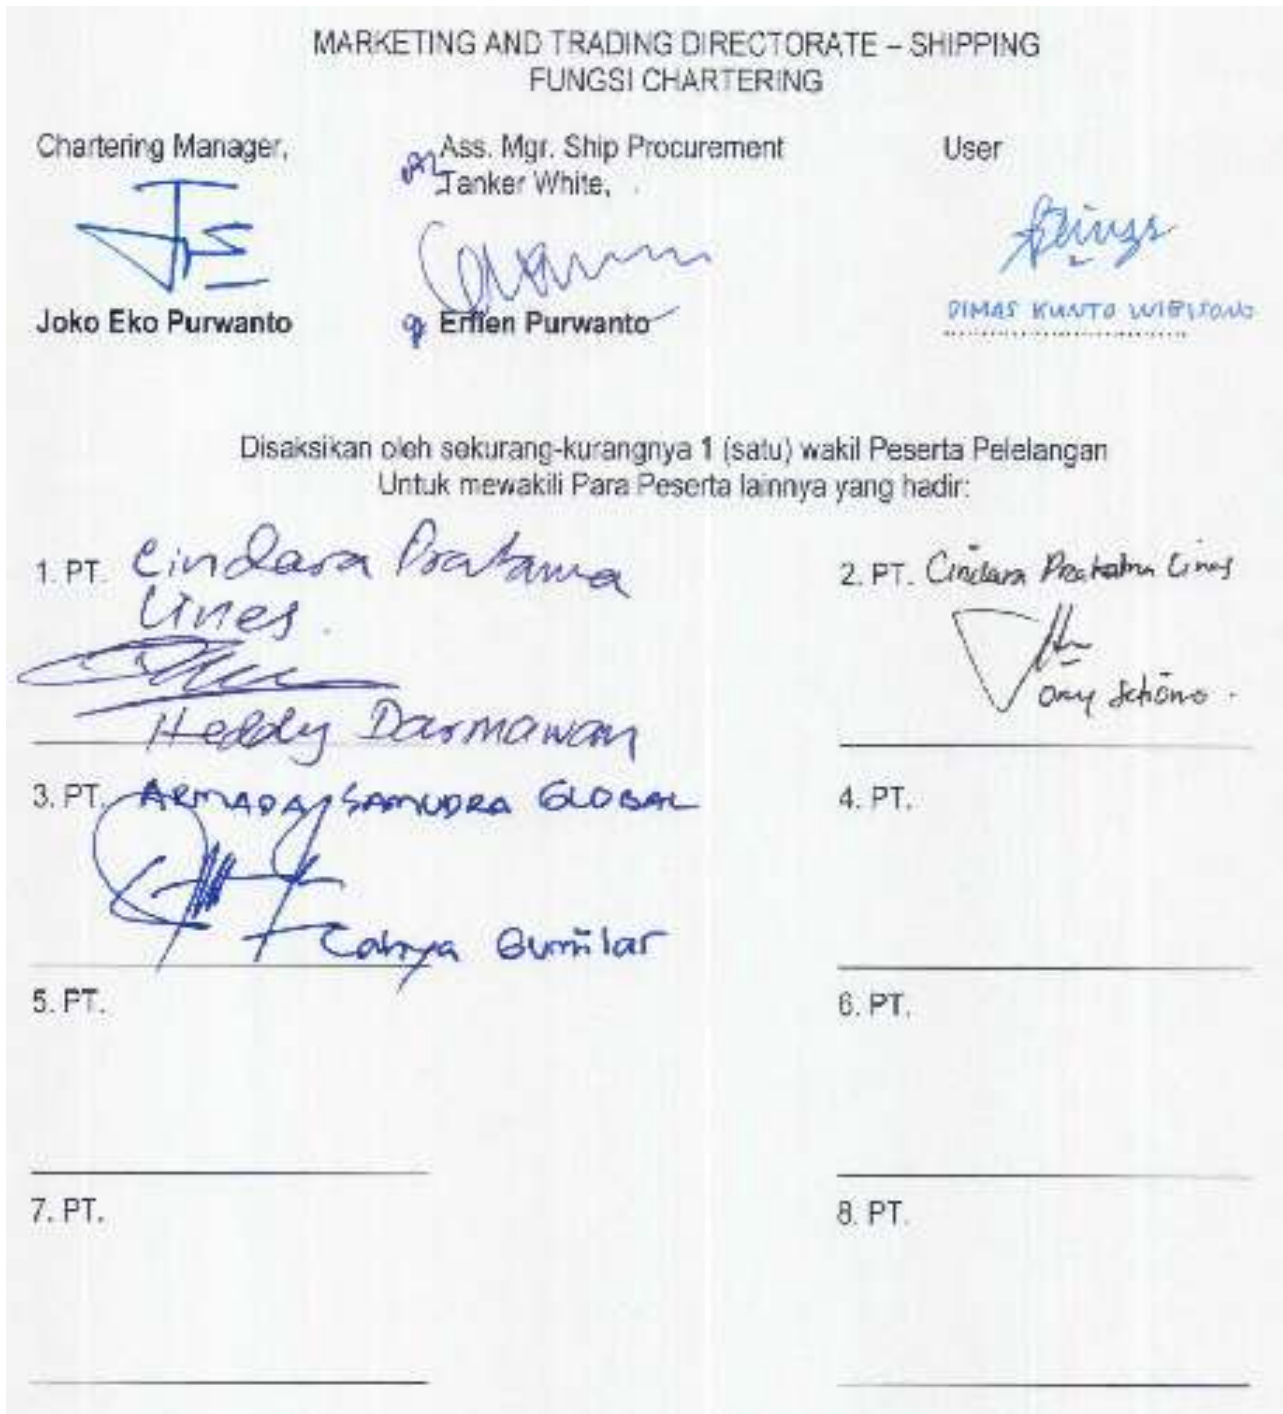 MARKETING AND TRADING DIRECTORATE – SHIPPING
FUNGSI CHARTERING
Chartering Manager,
Ass. Mgr. Ship Procurement
Tanker White,
User
Joko Eko Purwanto
Erfien Purwanto
DIMAS KUNTO WIBISONO
Disaksikan oleh sekurang-kurangnya 1 (satu) wakil Peserta Pelelangan
Untuk mewakili Para Peserta lainnya yang hadir:
1. PT. Cindara Pratama
Lines.
Heddy Darmawan
2. PT. Cindara Pratama Lines
Ony Setiono.
3. PT. ARMADA SAMUDRA GLOBAL
Cahya Gumilar
4. PT.
5. PT.
6. PT.
7. PT.
8. PT.